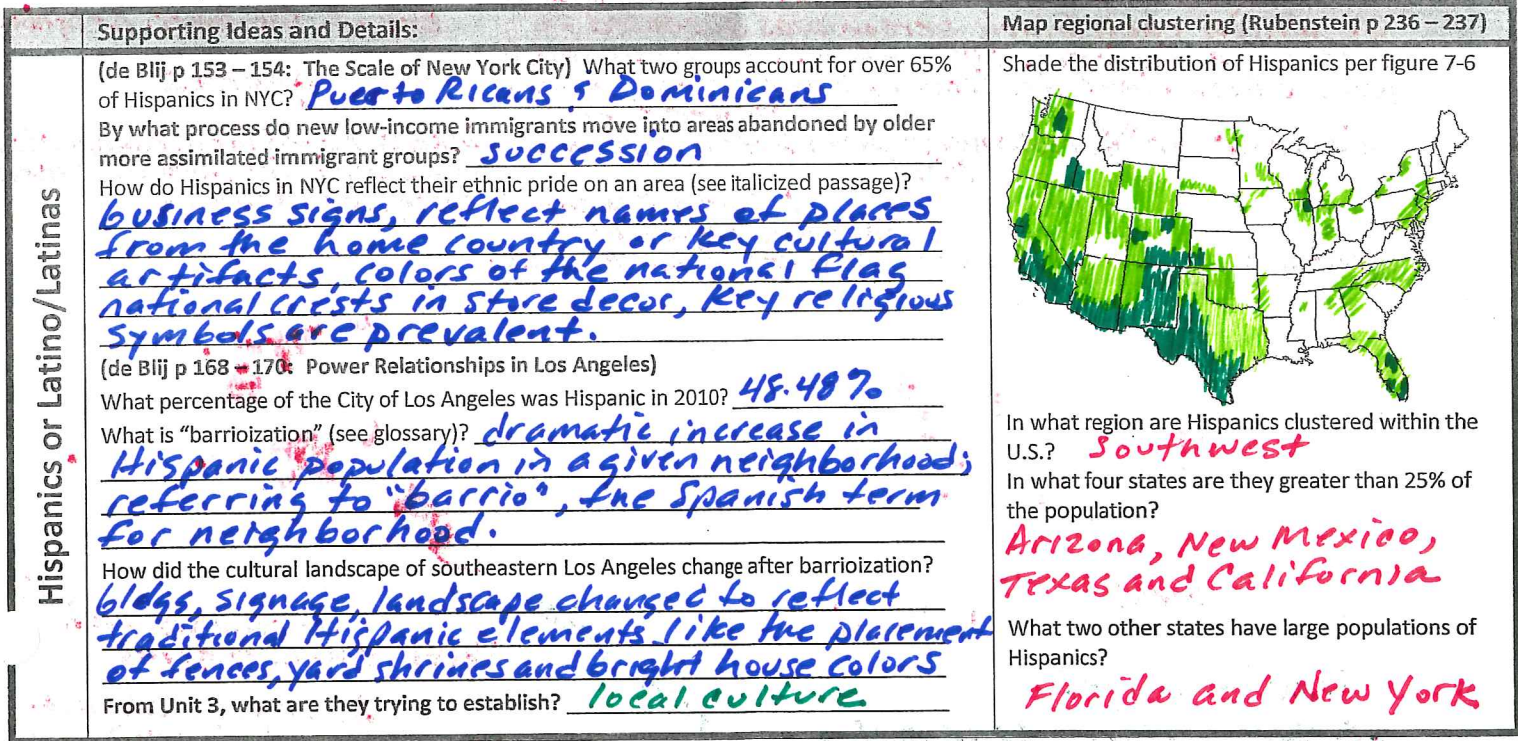 Hispanics or Latino/Latinas
Supporting Ideas and Details:
(de Blij p 153 – 154: The Scale of New York City) What two groups account for over 65%
of Hispanics in NYC? Puerto Ricans & Dominicans
By what process do new low-income immigrants move into areas abandoned by older
more assimilated immigrant groups? succession
How do Hispanics in NYC reflect their ethnic pride on an area (see italicized passage)?
business signs, reflect names of places
from the home country or key cultural
artifacts, colors of the national flag
national crests in store decor, key religious
symbols are prevalent.
(de Blij p 168 – 170: Power Relationships in Los Angeles)
What percentage of the City of Los Angeles was Hispanic in 2010? 48.48%
What is "barrioization" (see glossary)? dramatic increase in
Hispanic population in a given neighborhood;
referring to "barrio", the Spanish term
for neighborhood.
How did the cultural landscape of southeastern Los Angeles change after barrioization?
bldgs, signage, landscape changed to reflect
traditional Hispanic elements like the placement
of fences, yard shrines and bright house colors
From Unit 3, what are they trying to establish? local culture
Map regional clustering (Rubenstein p 236 – 237)
Shade the distribution of Hispanics per figure 7-6
In what region are Hispanics clustered within the
U.S.? Southwest
In what four states are they greater than 25% of
the population?
Arizona, New Mexico,
Texas and California
What two other states have large populations of
Hispanics?
Florida and New York